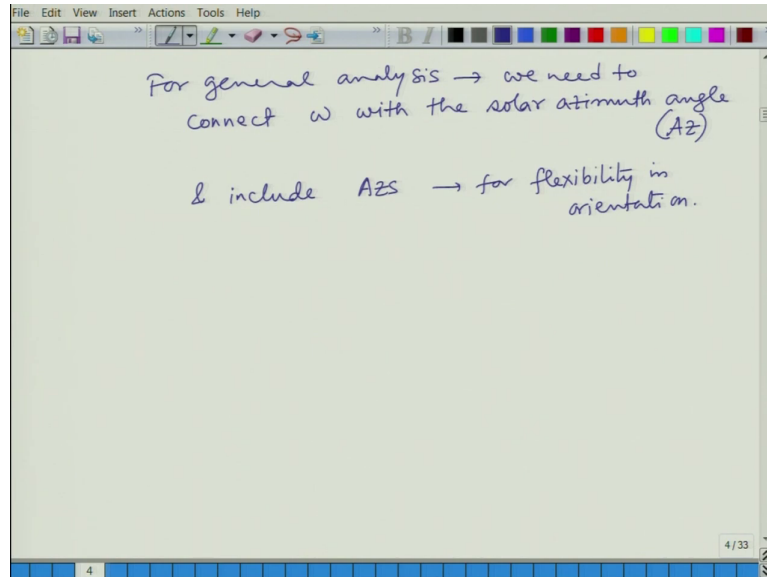 File Edit View Insert Actions Tools Help
» » B I
For general analysis → we need to
connect ω with the solar azimuth angle
(AZ)
& include AZS → for flexibility in
orientation.
4/33
4